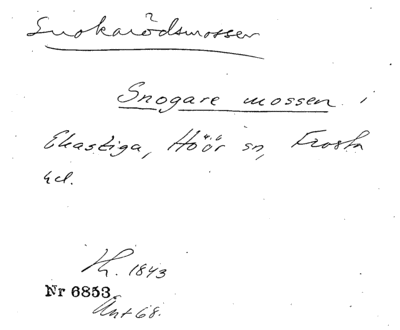 Snokarödsmossen
Snogare mossen i
Ekastiga, Höör sn, Frosta
hd.
1843
Nr 6853
Ant 68.